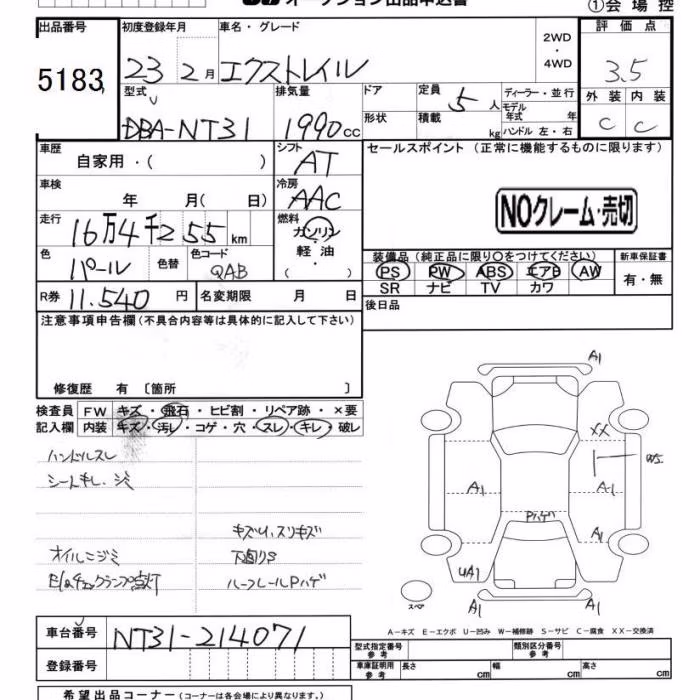 オークション出品申込書
①会場控
出品番号 初度登録年月 車名・グレード 2WD・4WD 評価点
5183 23 2月 エクストレイル 3.5
型式 排気量 ドア 定員 5人 ディーラー・並行 外装 内装
DBA-NT31 1990cc 形状 積載 kg モデル年式 年 ハンドル 左・右 C C
車歴 自家用・( ) シフト AT セールスポイント (正常に機能するものに限ります)
車検 年 月( 日) 冷房 AAC
NOクレーム・売切
走行 16万4千255km 燃料 ガソリン・軽油・( )
色 パール 色替 色コード QAB
装備品 (純正品に限り○をつけてください) 新車保証書
PS PW ABS エアB AW 有・無
SR ナビ TV カワ
R券 11.540円 名変期限 月 日 後日品
注意事項申告欄 (不具合内容等は具体的に記入して下さい)
修復歴 有 〔箇所 〕
検査員記入欄 FW キズ・飛石・ヒビ割・リペア跡・×要
内装 キズ・汚レ・コゲ・穴・スレ・キレ・破レ
ハンドルスレ
シートキレ、シミ
キズU,スリキズ
オイルニジミ 下回りS
ルーフレールPハゲ
A1
XX
W5
A1 A1
Pハゲ
A1
UA1
A1 A1
スペア
A−キズ E−エクボ U−凹み W−補修跡 S−サビ C−腐食 XX−交換済
車台番号 NT31-214071
登録番号
型式指定番号 参考 類別区分番号 参考
車庫証明用 参考 長さ cm 幅 cm 高さ cm
希望出品コーナー (コーナーは各会場により異なります。)